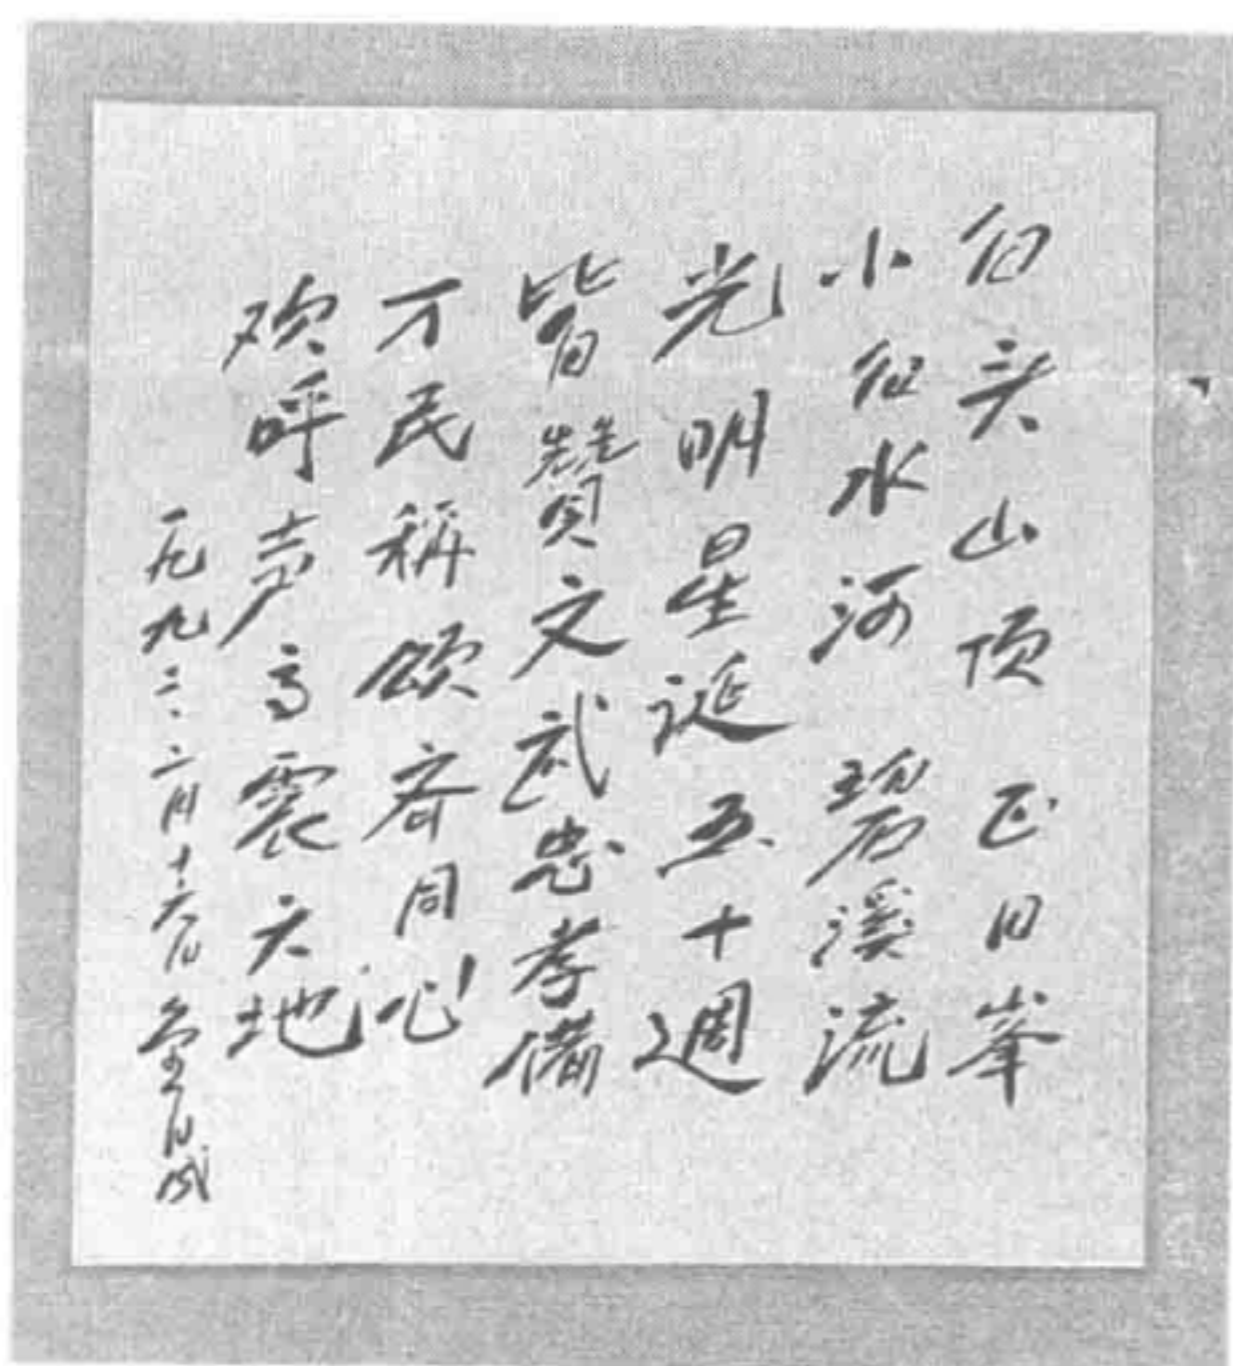 白头山顶正日峯
小白水河碧溪流
光明星诞五十週
皆赞文武忠孝備
万民称颂齐同心
欢呼声高震天地
一九九二、二月十六日 金日成